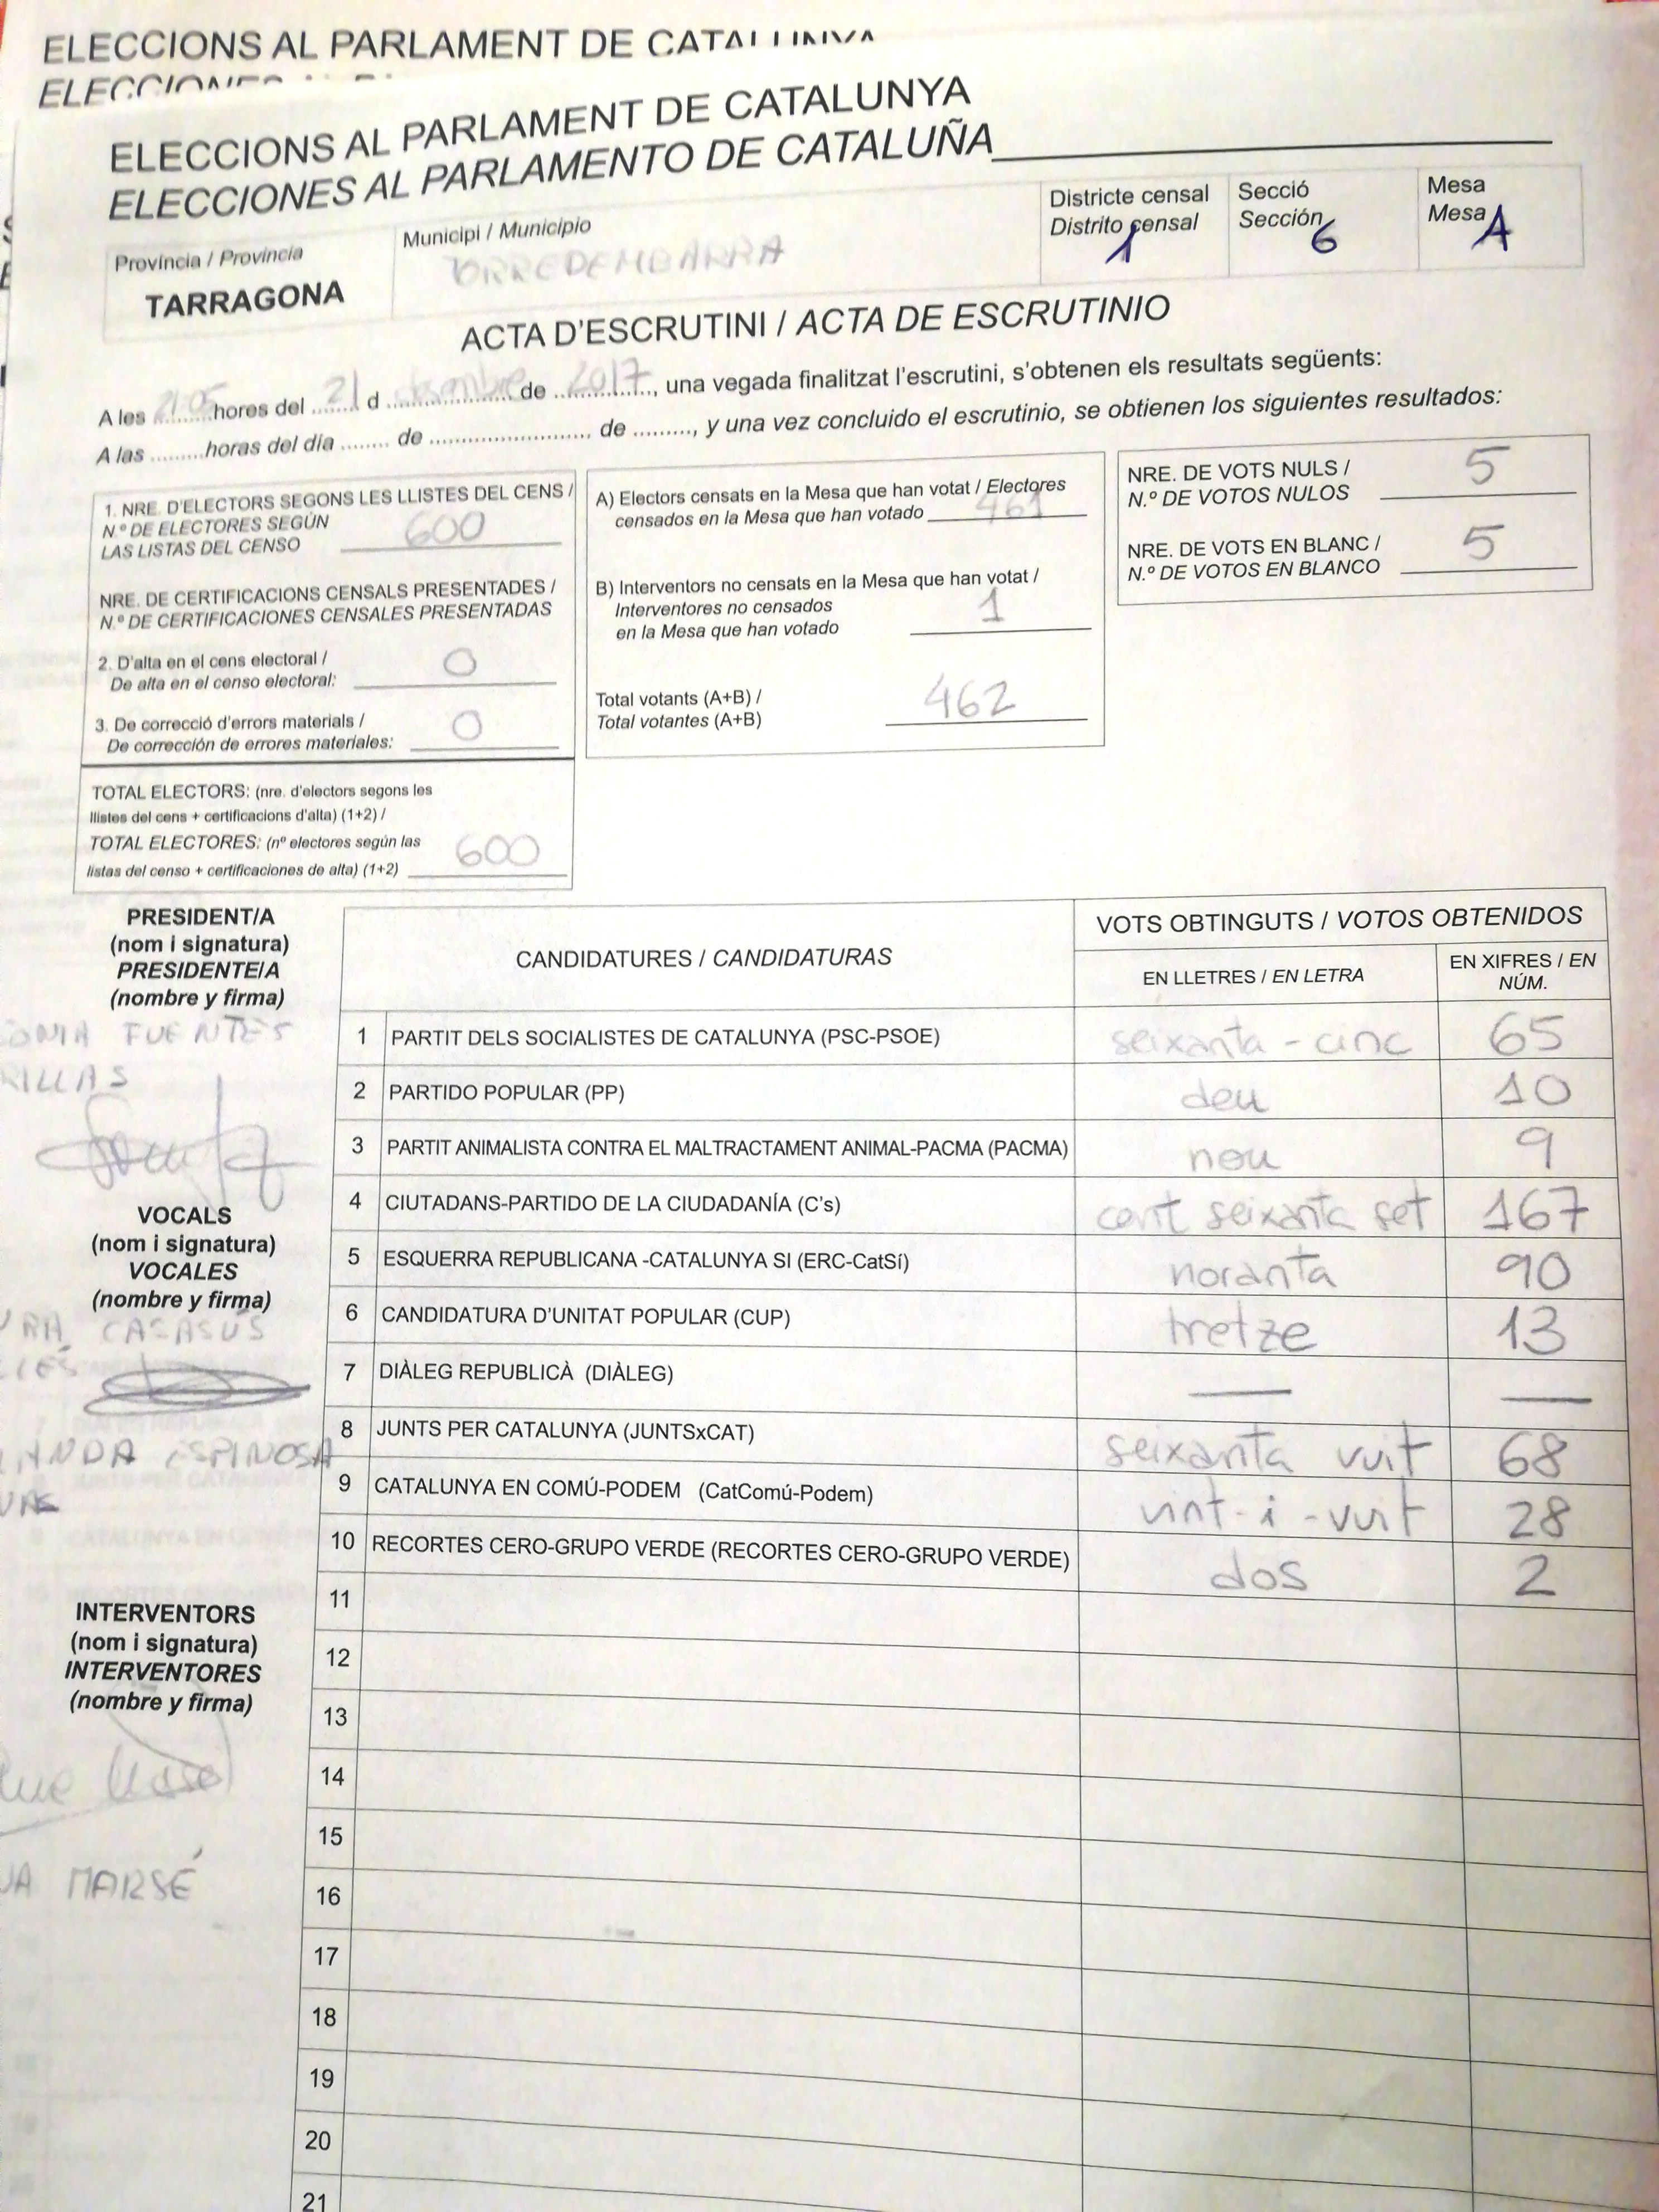 ELECCIONS AL PARLAMENT DE
ELECCIONS AL PARLAMENT DE CATALUNYA
ELECCIONES AL PARLAMENTO DE CATALUÑA
Província / Provincia
TARRAGONA
Municipi / Municipio
TORREDEMBARRA
Districte censal
Distrito censal
1
Secció
Sección
6
Mesa
Mesa
A
ACTA D'ESCRUTINI / ACTA DE ESCRUTINIO
A les 21:05 hores del 21 d desembre de 2017, una vegada finalitzat l'escrutini, s'obtenen els resultats següents:
A las .........horas del día ........ de ........................, de ........., y una vez concluido el escrutinio, se obtienen los siguientes resultados:
1. NRE. D'ELECTORS SEGONS LES LLISTES DEL CENS /
N.º DE ELECTORES SEGÚN
LAS LISTAS DEL CENSO 600
NRE. DE CERTIFICACIONS CENSALS PRESENTADES /
N.º DE CERTIFICACIONES CENSALES PRESENTADAS
2. D'alta en el cens electoral /
De alta en el censo electoral: 0
3. De correcció d'errors materials /
De corrección de errores materiales: 0
TOTAL ELECTORS: (nre. d'electors segons les
llistes del cens + certificacions d'alta) (1+2) /
TOTAL ELECTORES: (nº electores según las
listas del censo + certificaciones de alta) (1+2) 600
A) Electors censats en la Mesa que han votat / Electores
censados en la Mesa que han votado 461
B) Interventors no censats en la Mesa que han votat /
Interventores no censados
en la Mesa que han votado 1
Total votants (A+B) /
Total votantes (A+B) 462
NRE. DE VOTS NULS /
N.º DE VOTOS NULOS 5
NRE. DE VOTS EN BLANC /
N.º DE VOTOS EN BLANCO 5
PRESIDENT/A
(nom i signatura)
PRESIDENTE/A
(nombre y firma)
SONIA FUENTES
RILLAS
VOCALS
(nom i signatura)
VOCALES
(nombre y firma)
CASASÚS
ESPINOSA
INTERVENTORS
(nom i signatura)
INTERVENTORES
(nombre y firma)
MARSÉ
CANDIDATURES / CANDIDATURAS
VOTS OBTINGUTS / VOTOS OBTENIDOS
EN LLETRES / EN LETRA
EN XIFRES / EN
NÚM.
1 PARTIT DELS SOCIALISTES DE CATALUNYA (PSC-PSOE) seixanta - cinc 65
2 PARTIDO POPULAR (PP) deu 10
3 PARTIT ANIMALISTA CONTRA EL MALTRACTAMENT ANIMAL-PACMA (PACMA) nou 9
4 CIUTADANS-PARTIDO DE LA CIUDADANÍA (C's) cent seixanta set 167
5 ESQUERRA REPUBLICANA -CATALUNYA SI (ERC-CatSí) noranta 90
6 CANDIDATURA D'UNITAT POPULAR (CUP) tretze 13
7 DIÀLEG REPUBLICÀ (DIÀLEG) — —
8 JUNTS PER CATALUNYA (JUNTSxCAT) seixanta vuit 68
9 CATALUNYA EN COMÚ-PODEM (CatComú-Podem) vint-i-vuit 28
10 RECORTES CERO-GRUPO VERDE (RECORTES CERO-GRUPO VERDE) dos 2
11
12
13
14
15
16
17
18
19
20
21